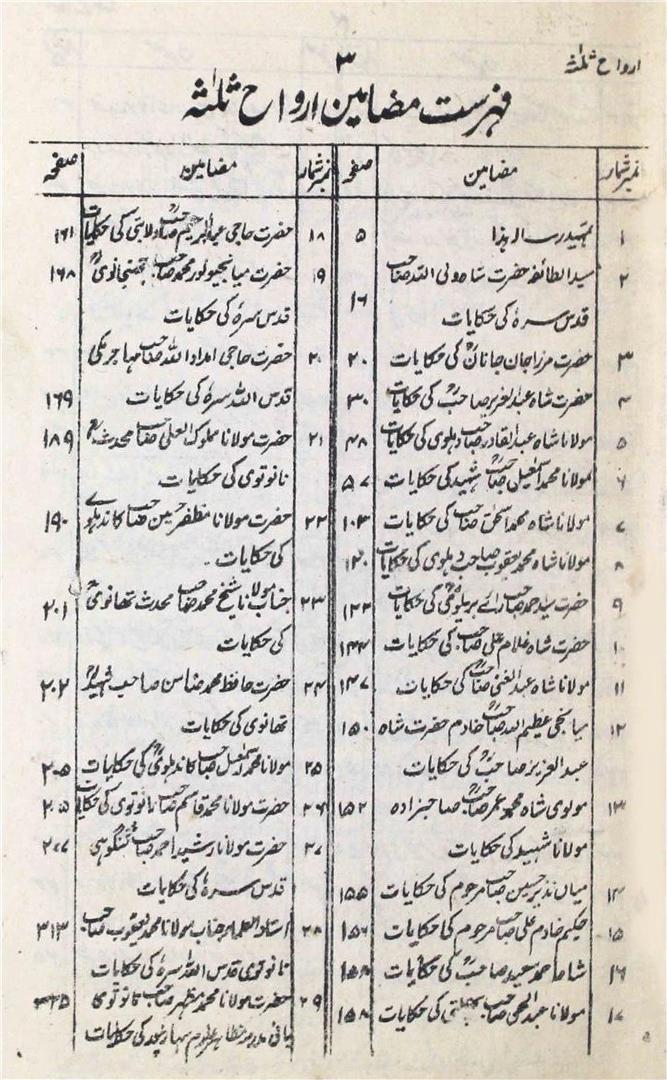 ارواح ثلٰثہ
۳
فہرست مضامین ارواح ثلٰثہ
نمبر شمار مضامین صفحہ
۱ تمہید رسالہ ہذا ۵
۲ سید الطائفہ حضرت شاہ ولی اللہ صاحب
قدس سرہٗ کی حکایات ۱۶
۳ حضرت مرزا جان جاناںؒ کی حکایات ۲۰
۴ حضرت شاہ عبدالعزیز صاحبؒ کی حکایات ۳۰
۵ مولانا شاہ عبدالقادر صاحب دہلوی کی حکایات ۴۸
۶ مولانا محمد اسمٰعیل صاحب شہید کی حکایات ۵۷
۷ مولانا شاہ محمد اسحٰق صاحب کی حکایات ۱۰۳
۸ مولانا شاہ محمد یعقوب صاحب دہلوی کی حکایات ۱۲۰
۹ حضرت سید احمد صاحب رائے بریلویؒ کی حکایات ۱۲۲
۱۰ حضرت شاہ غلام علی صاحب کی حکایات ۱۴۴
۱۱ مولانا شاہ عبدالغنی صاحبؒ کی حکایات ۱۴۷
۱۲ میانجی عظیم اللہ صاحب خادم حضرت شاہ ۱۵۰
عبدالعزیز صاحبؒ کی حکایات
۱۳ مولوی شاہ محمد عمر صاحبؒ صاحبزادہ ۱۵۲
مولانا شہید کی حکایات
۱۴ میاں نذیر حسین صاحب مرحوم کی حکایات ۱۵۵
۱۵ حکیم خادم علی صاحب مرحوم کی حکایات ۱۵۶
۱۶ شاہ احمد سعید صاحبؒ کی حکایات ۱۵۸
۱۷ مولانا عبدالحی صاحب کی حکایات ۱۵۸
نمبر شمار مضامین صفحہ
۱۸ حضرت حاجی عبدالرحیم صاحب ولایتی کی حکایات ۱۶۱
۱۹ حضرت میانجیو نور محمد صاحب جھنجانویؒ ۱۶۸
قدس سرہٗ کی حکایات
۲۰ حضرت حاجی امداد اللہ صاحب مہاجر مکی
قدس اللہ سرہٗ کی حکایات ۱۶۹
۲۱ حضرت مولانا مملوک العلی صاحب محدث ۱۸۹
نانوتوی کی حکایات
۲۲ حضرت مولانا مظفر حسین صاحب کاندہلوی ۱۹۰
کی حکایات
۲۳ جناب مولانا شیخ محمد صاحب محدث تھانویؒ ۲۰۱
کی حکایات
۲۴ حضرت حافظ محمد ضامن صاحب شہیدؒ ۲۰۲
تھانوی کی حکایات
۲۵ مولانا محمد اسمٰعیل صاحب کاندہلویؒ کی حکایات ۲۰۵
۲۶ حضرت مولانا محمد قاسم صاحب نانوتوی کی حکایات ۲۰۵
۲۷ حضرت مولانا رشید احمد صاحب گنگوہی ۲۷۷
قدس سرہٗ کی حکایات
۲۸ استاذ العلماء جناب مولانا محمد یعقوب صاحب ۳۱۳
نانوتوی قدس اللہ سرہٗ کی حکایات
۲۹ حضرت مولانا محمد مظہر صاحب نانوتوی ۳۳۵
بانی مدرسہ مظاہر علوم سہارنپور کی حکایات